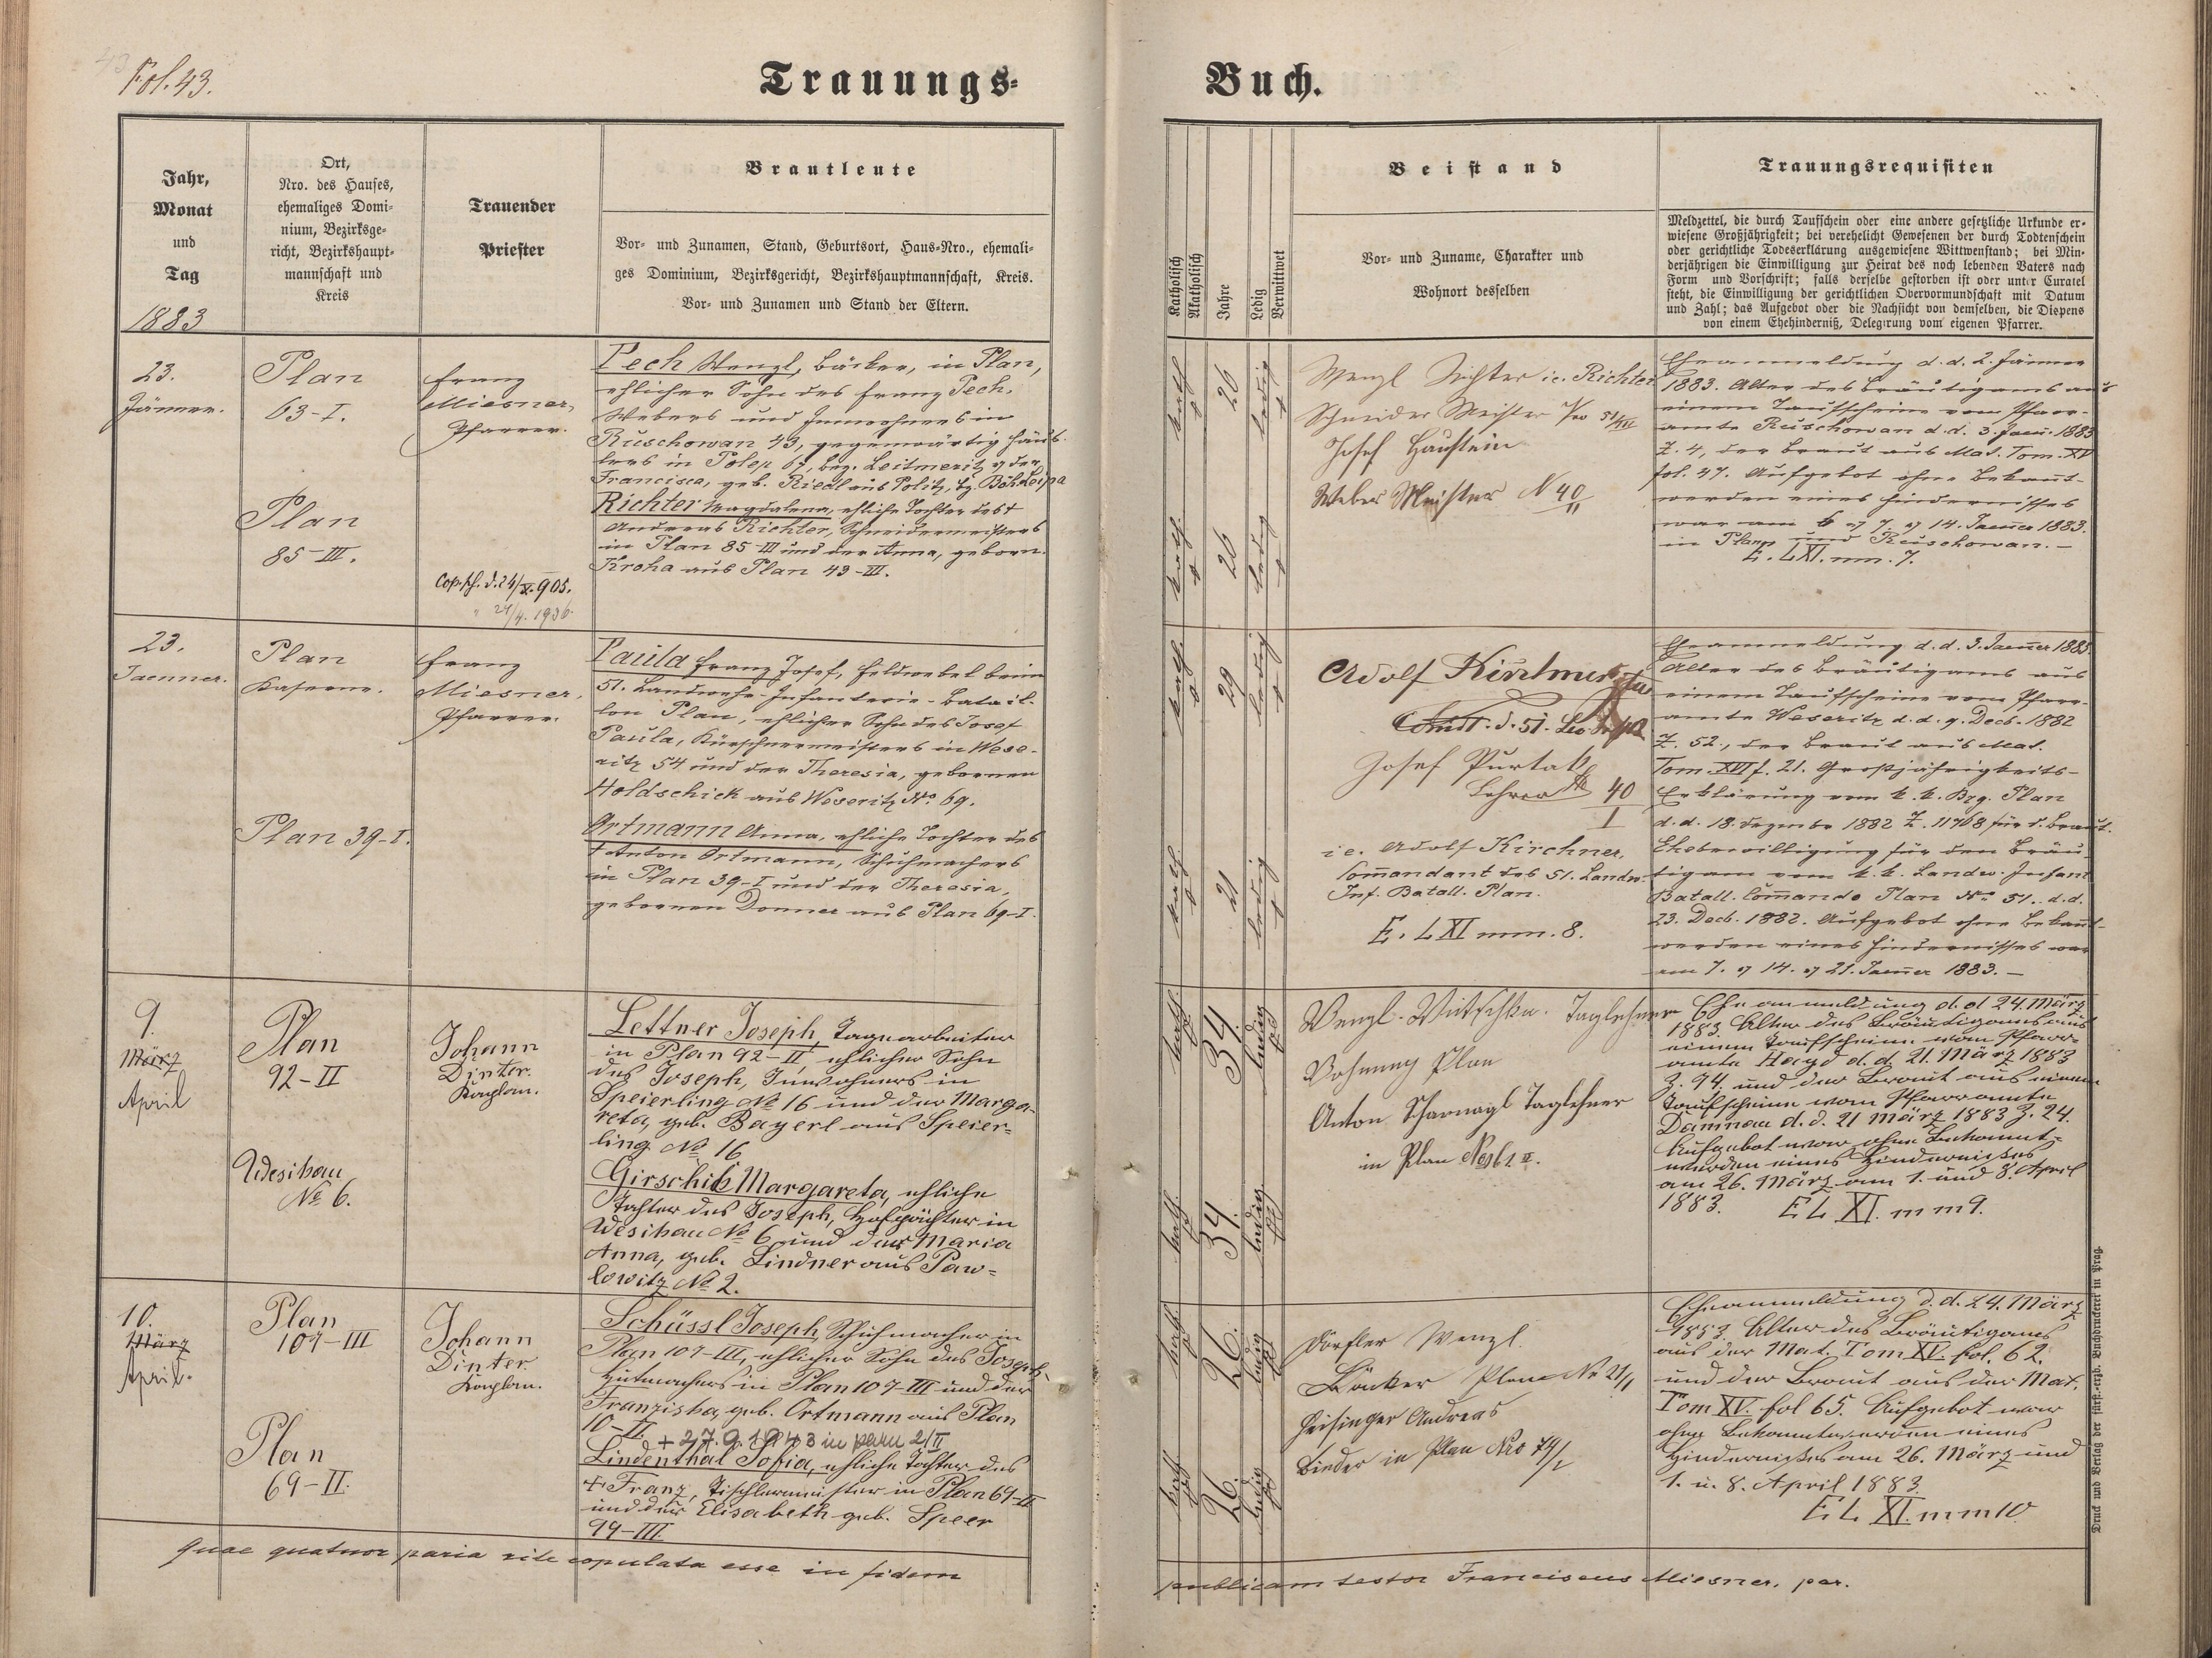 Fol. 43.
Trauungs-
Buch.
Jahr,
Monat
und
Tag
1883
Ort,
Nro. des Hauses,
ehemaliges Domi-
nium, Bezirksge-
richt, Bezirkshaupt-
mannschaft und
Kreis
Trauender
Priester
Brautleute
Vor- und Zunamen, Stand, Geburtsort, Haus-Nro., ehemali-
ges Dominium, Bezirksgericht, Bezirkshauptmannschaft, Kreis.
Vor- und Zunamen und Stand der Eltern.
Katholisch
Akatholisch
Jahre
Ledig
Verwittwet
Beistand
Vor- und Zuname, Charakter und
Wohnort desselben
Trauungsrequisiten
Meldzettel, die durch Taufschein oder eine andere gesetzliche Urkunde er-
wiesene Großjährigkeit; bei verehelicht Gewesenen der durch Todtenschein
oder gerichtliche Todeserklärung ausgewiesene Wittwenstand; bei Min-
derjährigen die Einwilligung zur Heirat des noch lebenden Vaters nach
Form und Vorschrift; falls derselbe gestorben ist oder unter Curatel
steht, die Einwilligung der gerichtlichen Obervormundschaft mit Datum
und Zahl; das Aufgebot oder die Nachsicht von demselben, die Dispens
von einem Ehehinderniß, Delegirung vom eigenen Pfarrer.
23.
Jänner.
Plan
63-I.
Plan
85-III.
Franz
Miesner,
Pfarrer.
Cop. sch. d. 24/X. 905.
" 24/4. 1936.
Pech Wenzl, Bäcker, in Plan,
ehlicher Sohn des Franz Pech,
Webers und Inwohners in
Ruschowan 43, gegenwärtig Häus-
lers in Polep 67, bez. Leitmeritz & der
Francisca, geb. Riedl aus Politz, bz. Böh. Leipa
Richter Magdalena, ehliche Tochter des †
Andreas Richter, Schneidermeisters
in Plan 85-III und der Anna, geborn.
Kroha aus Plan 43-III.
kath
26
ledig
kath
26
ledig
Wenzl Richter i.e. Richter
Schneider Meister Nro 51/III
Josef Haustein
Weber Meister N 40/II
Eheanmeldung d.d. 2. Jänner
1883. Alter des Bräutigams aus
einem Taufscheine vom Pfarr-
amte Ruschowan d.d. 3. Jaen. 1883
Z. 4, der Braut aus Mat. Tom. XV
fol. 47. Aufgebot ohne Bekannt-
werden eines Hindernisses
war am 6 & 7. & 14. Jaenner 1883.
in Plan und Ruschowan. –
E. LXI. mm. 7.
23.
Jaenner.
Plan
Kaserne.
Plan 39-I.
Franz
Miesner,
Pfarrer.
Paula Franz Josef, Feldwebel beim
51. Landwehr-Infanterie-Batail-
lon Plan, ehlicher Sohn des Josef
Paula, Kürschnermeisters in Wese-
ritz 54 und der Theresia, gebornen
Holdschick aus Weseritz No. 69.
Ortmann Anna, ehliche Tochter des
† Anton Ortmann, Schuhmachers
in Plan 39-I und der Theresia,
gebornen Donner aus Plan 69-I.
kath
29
ledig
kath
21
ledig
Adolf
Josef Purtak
Lehrer 40
I
i.e. Adolf Kirchner,
Commandant des 51. Landw.
Inf. Batall. Plan.
E. LXI mm. 8.
Eheanmeldung d.d. 3. Jaenner 1883.
Alter des Bräutigams aus
einem Taufscheine vom Pfarr-
amte Weseritz d.d. 9. Decb. 1882
Z. 52., der Braut aus Mat.
Tom. XVI f. 21. Großjährigkeits-
Erklärung vom k.k. Bzg. Plan
d.d. 18. Dezember 1882 Z. 11768 für d. Braut.
Ehebewilligung für den Bräu-
tigam vom k.k. Landw. Infant
Batall. Commando Plan No. 51. d.d.
23. Decb. 1882. Aufgebot ohne Bekannt-
werden eines Hindernisses war
am 7. & 14. & 21. Jaenner 1883. –
9.
März
April
Plan
92-II
Wesihau
No 6.
Johann
Dinter.
Kaplan.
Lettner Joseph, Tagearbeiter
in Plan 92-II, ehlicher Sohn
des Joseph, Inwohners in
Speierling No 16 und der Marga-
reta, geb. Bayerl aus Speier-
ling No 16
Girschik Margareta, ehliche
Tochter des Joseph, Hofpächter in
Wesihau No 6 und der Maria
Anna, geb. Lindner aus Paw-
lowitz No 2.
kath.
34.
ledig
kath.
34.
ledig
Wenzl Taglehner
Wohnung Plan
Anton Scharnagl Taglehner
in Plan
Eheanmeldung d.d 24. März
1883. Alter des Bräutigams aus
einem Taufscheine vom Pfarr-
amte Hayd d.d. 21. März 1883
Z. 94. und der Braut aus einem
Taufscheine vom Pfarramte
Damnau d.d. 21 März 1883 Z. 24.
Aufgebot war ohne Bekannt-
werden eines Hindernisses
am 26. März am 1. und 8. April
1883. E L XI. m m 9.
10.
März
April.
Plan
107-III
Plan
69-II.
Johann
Dinter.
Kaplan.
Schüssl Joseph, Schuhmacher in
Plan 107-III, ehlicher Sohn des Joseph,
Hutmachers in Plan 107-III und der
Franziska, geb. Ortmann aus Plan
10-II. + 27.9.1943 in Plan 2/II
Lindenthal Sofia, ehliche Tochter des
† Franz, Tischlermeister in Plan 69-II
und der Elisabeth geb. Speer
99-III
kath.
26.
ledig
kath.
26.
ledig
Dörfler Wenzl.
Bäcker Plan Nr 21/1
Heisinger Andreas
Binder in Plan Nro 74/I
Eheanmeldung d.d. 24. März
1883. Alter des Bräutigams
aus der Mat. Tom XV. fol. 62.
und der Braut aus der Mat.
Tom XV. fol 65. Aufgebot war
ohne Bekanntwerden eines
Hindernisses am 26. März und
1. u. 8. April 1883.
E. L XI. m m 10
Quae quatuor paria rite copulata esse in fidem
publicam testor Franciscus Miesner, par.
Druck und Verlag der fürst.-erzb. Buchdruckerei in Prag.